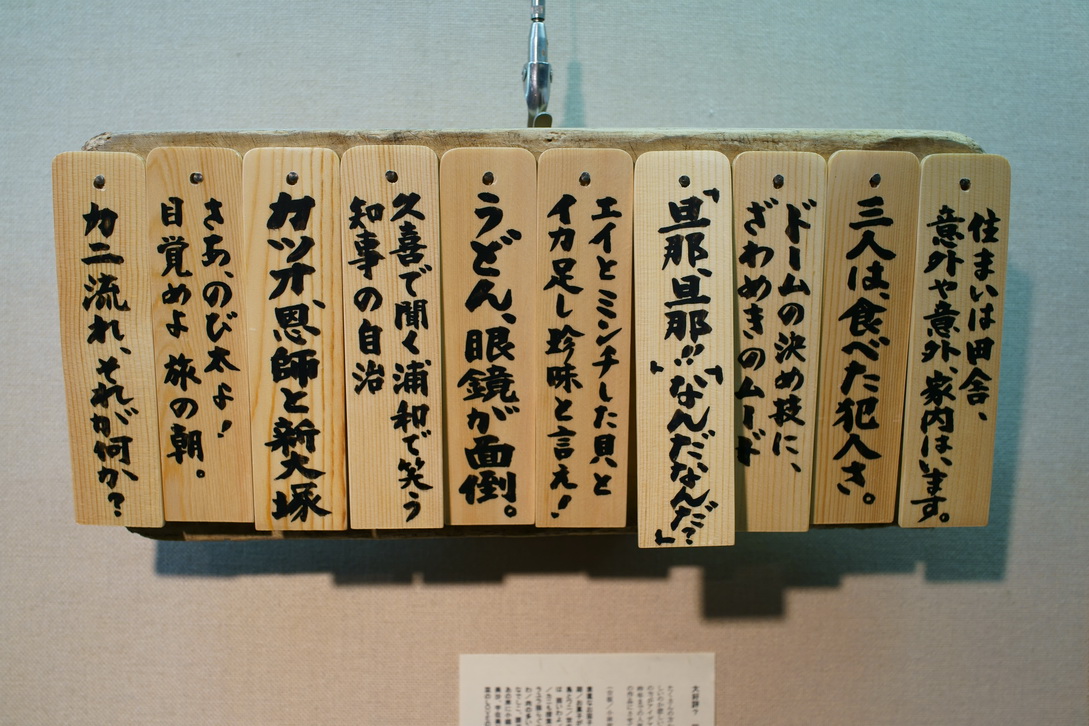 住まいは田舎、
意外や意外、家内は、います。
三人は、食べた犯人さ。
ドームの決め技に、
ざわめきのムード
「旦那、旦那!!」
「なんだなんだ?」
エイとミンチした貝と
イカ足し珍味と言え!
うどん、眼鏡が面倒。
久喜で聞く浦和で笑う
知事の自治
カツオ、恩師と新大塚
さあ、のび太よ!
目覚めよ 旅の朝。
カニ流れ、それが何か?
大好評?